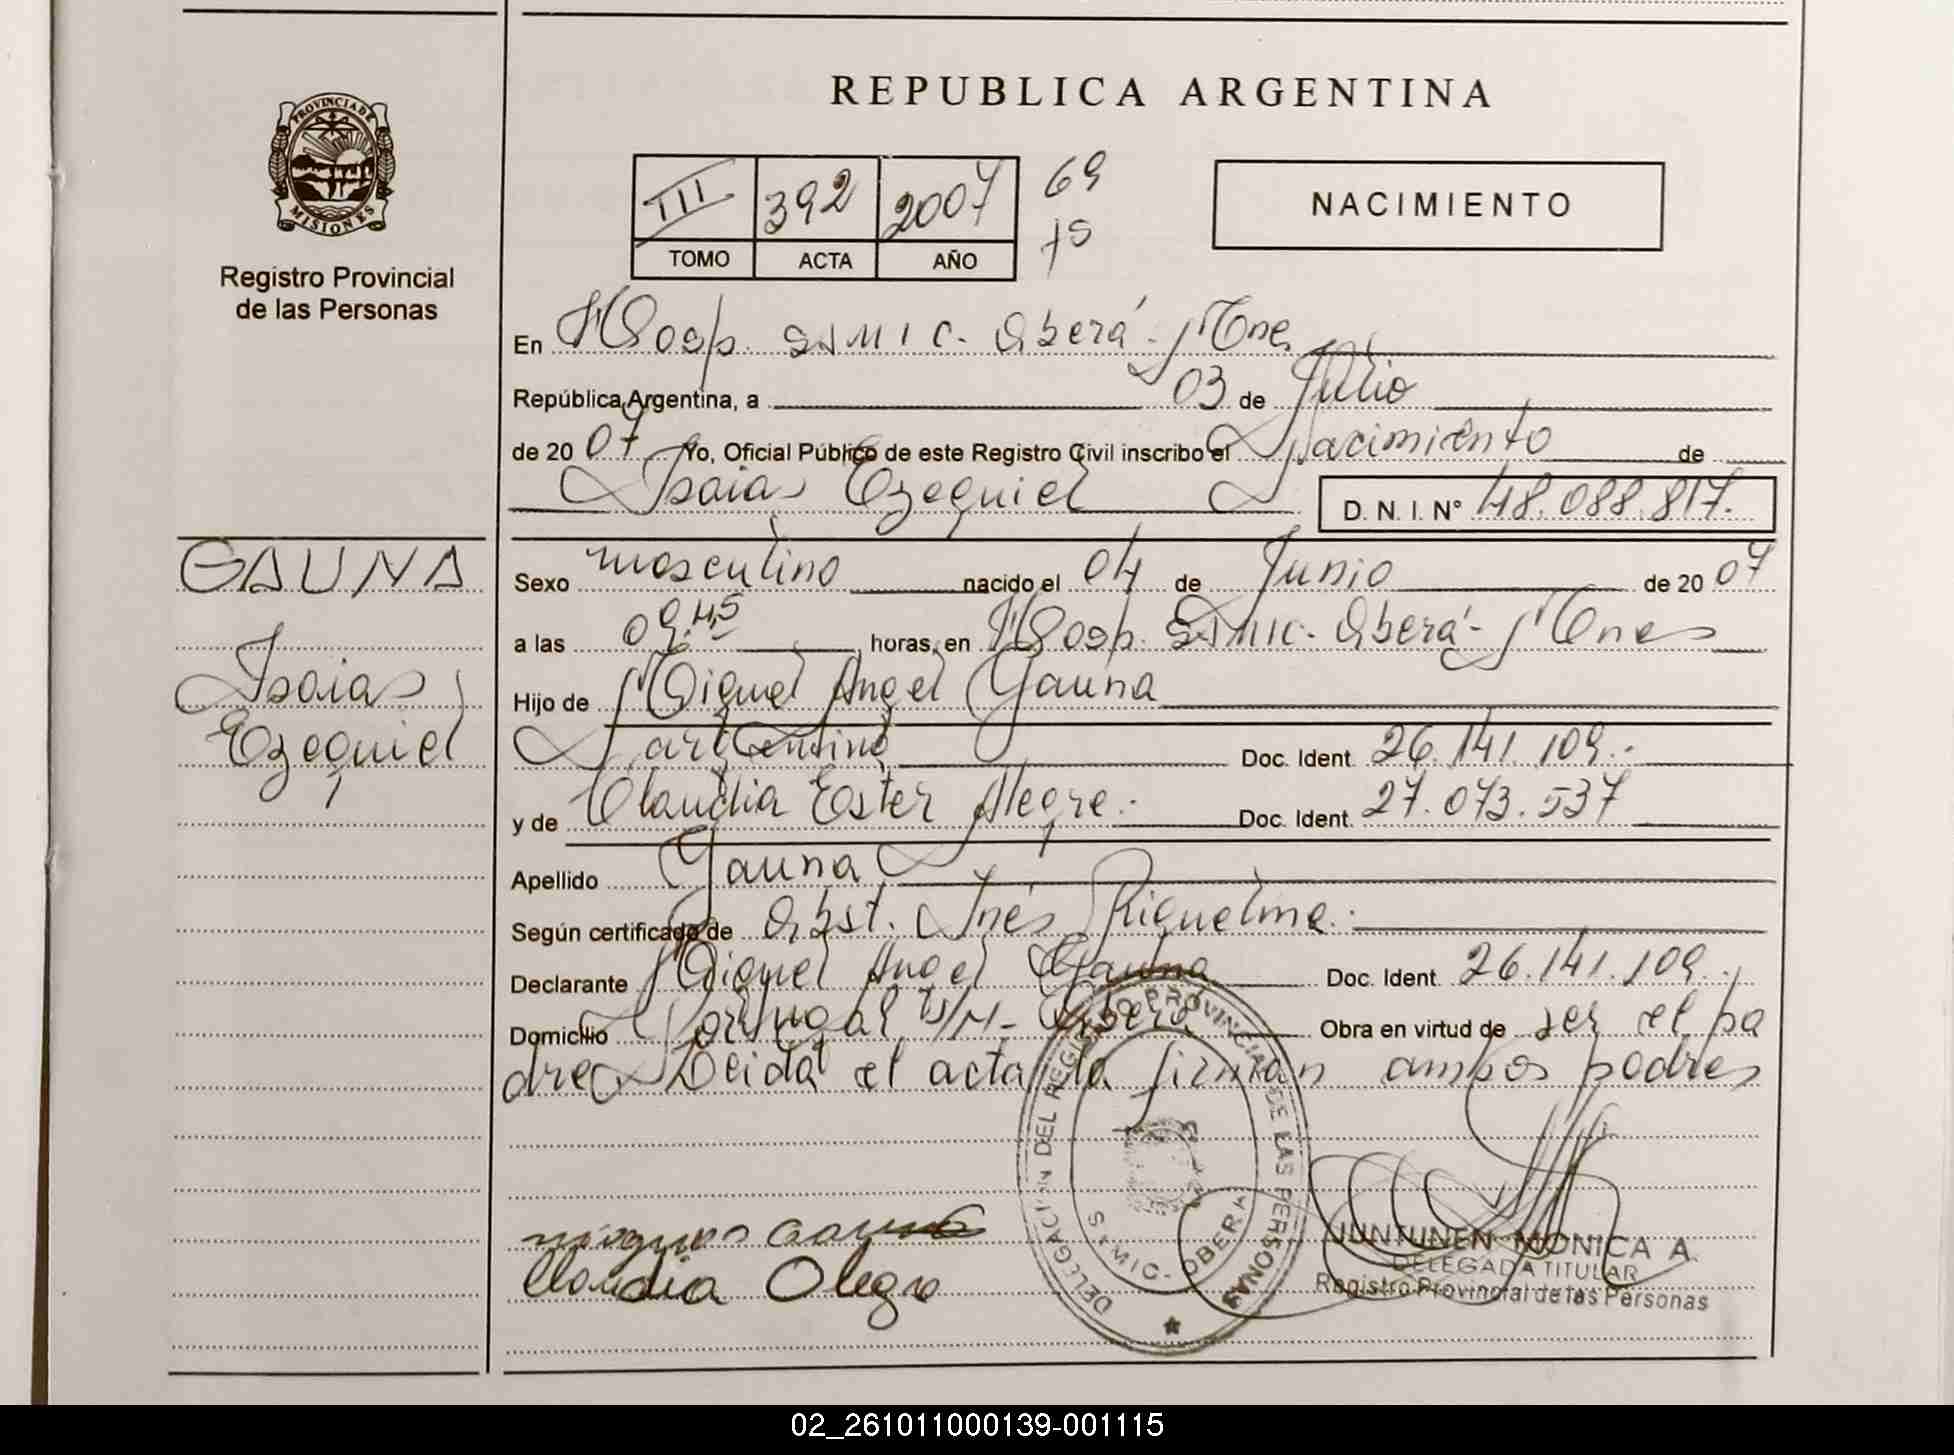 REPUBLICA ARGENTINA
PROVINCIA DE
MISIONES
Registro Provincial
de las Personas
III 392 2007 69
TOMO ACTA AÑO 75
NACIMIENTO
En Hosp. SAMIC. Oberá - Mnes.
República Argentina, a 03 de Julio
de 20 07 Yo, Oficial Público de este Registro Civil inscribo el Nacimiento de
Isaias Ezequiel D. N. I. N° 48.088.817.
GAUNA
Isaias
Ezequiel
Sexo masculino nacido el 04 de Junio de 20 07
a las 09.45 horas, en Hosp. SAMIC. Oberá - Mnes
Hijo de Miguel Angel Gauna
argentino Doc. Ident. 26.141.109.-
y de Claudia Ester Alegre.- Doc. Ident. 27.073.537
Apellido Gauna
Según certificado de Obst. Inés Riquelme.-
Declarante Miguel Angel Gauna Doc. Ident. 26.141.109.-
Domicilio S/N - Oberá Obra en virtud de ser el pa
dre Leida el acta la firman ambos padres
Claudia Alegre
DELEGACION DEL REGISTRO PROVINCIAL DE LAS PERSONAS
SAMIC - OBERA
JUNTUNEN MONICA A.
DELEGADA TITULAR
Registro Provincial de las Personas
02_261011000139-001115